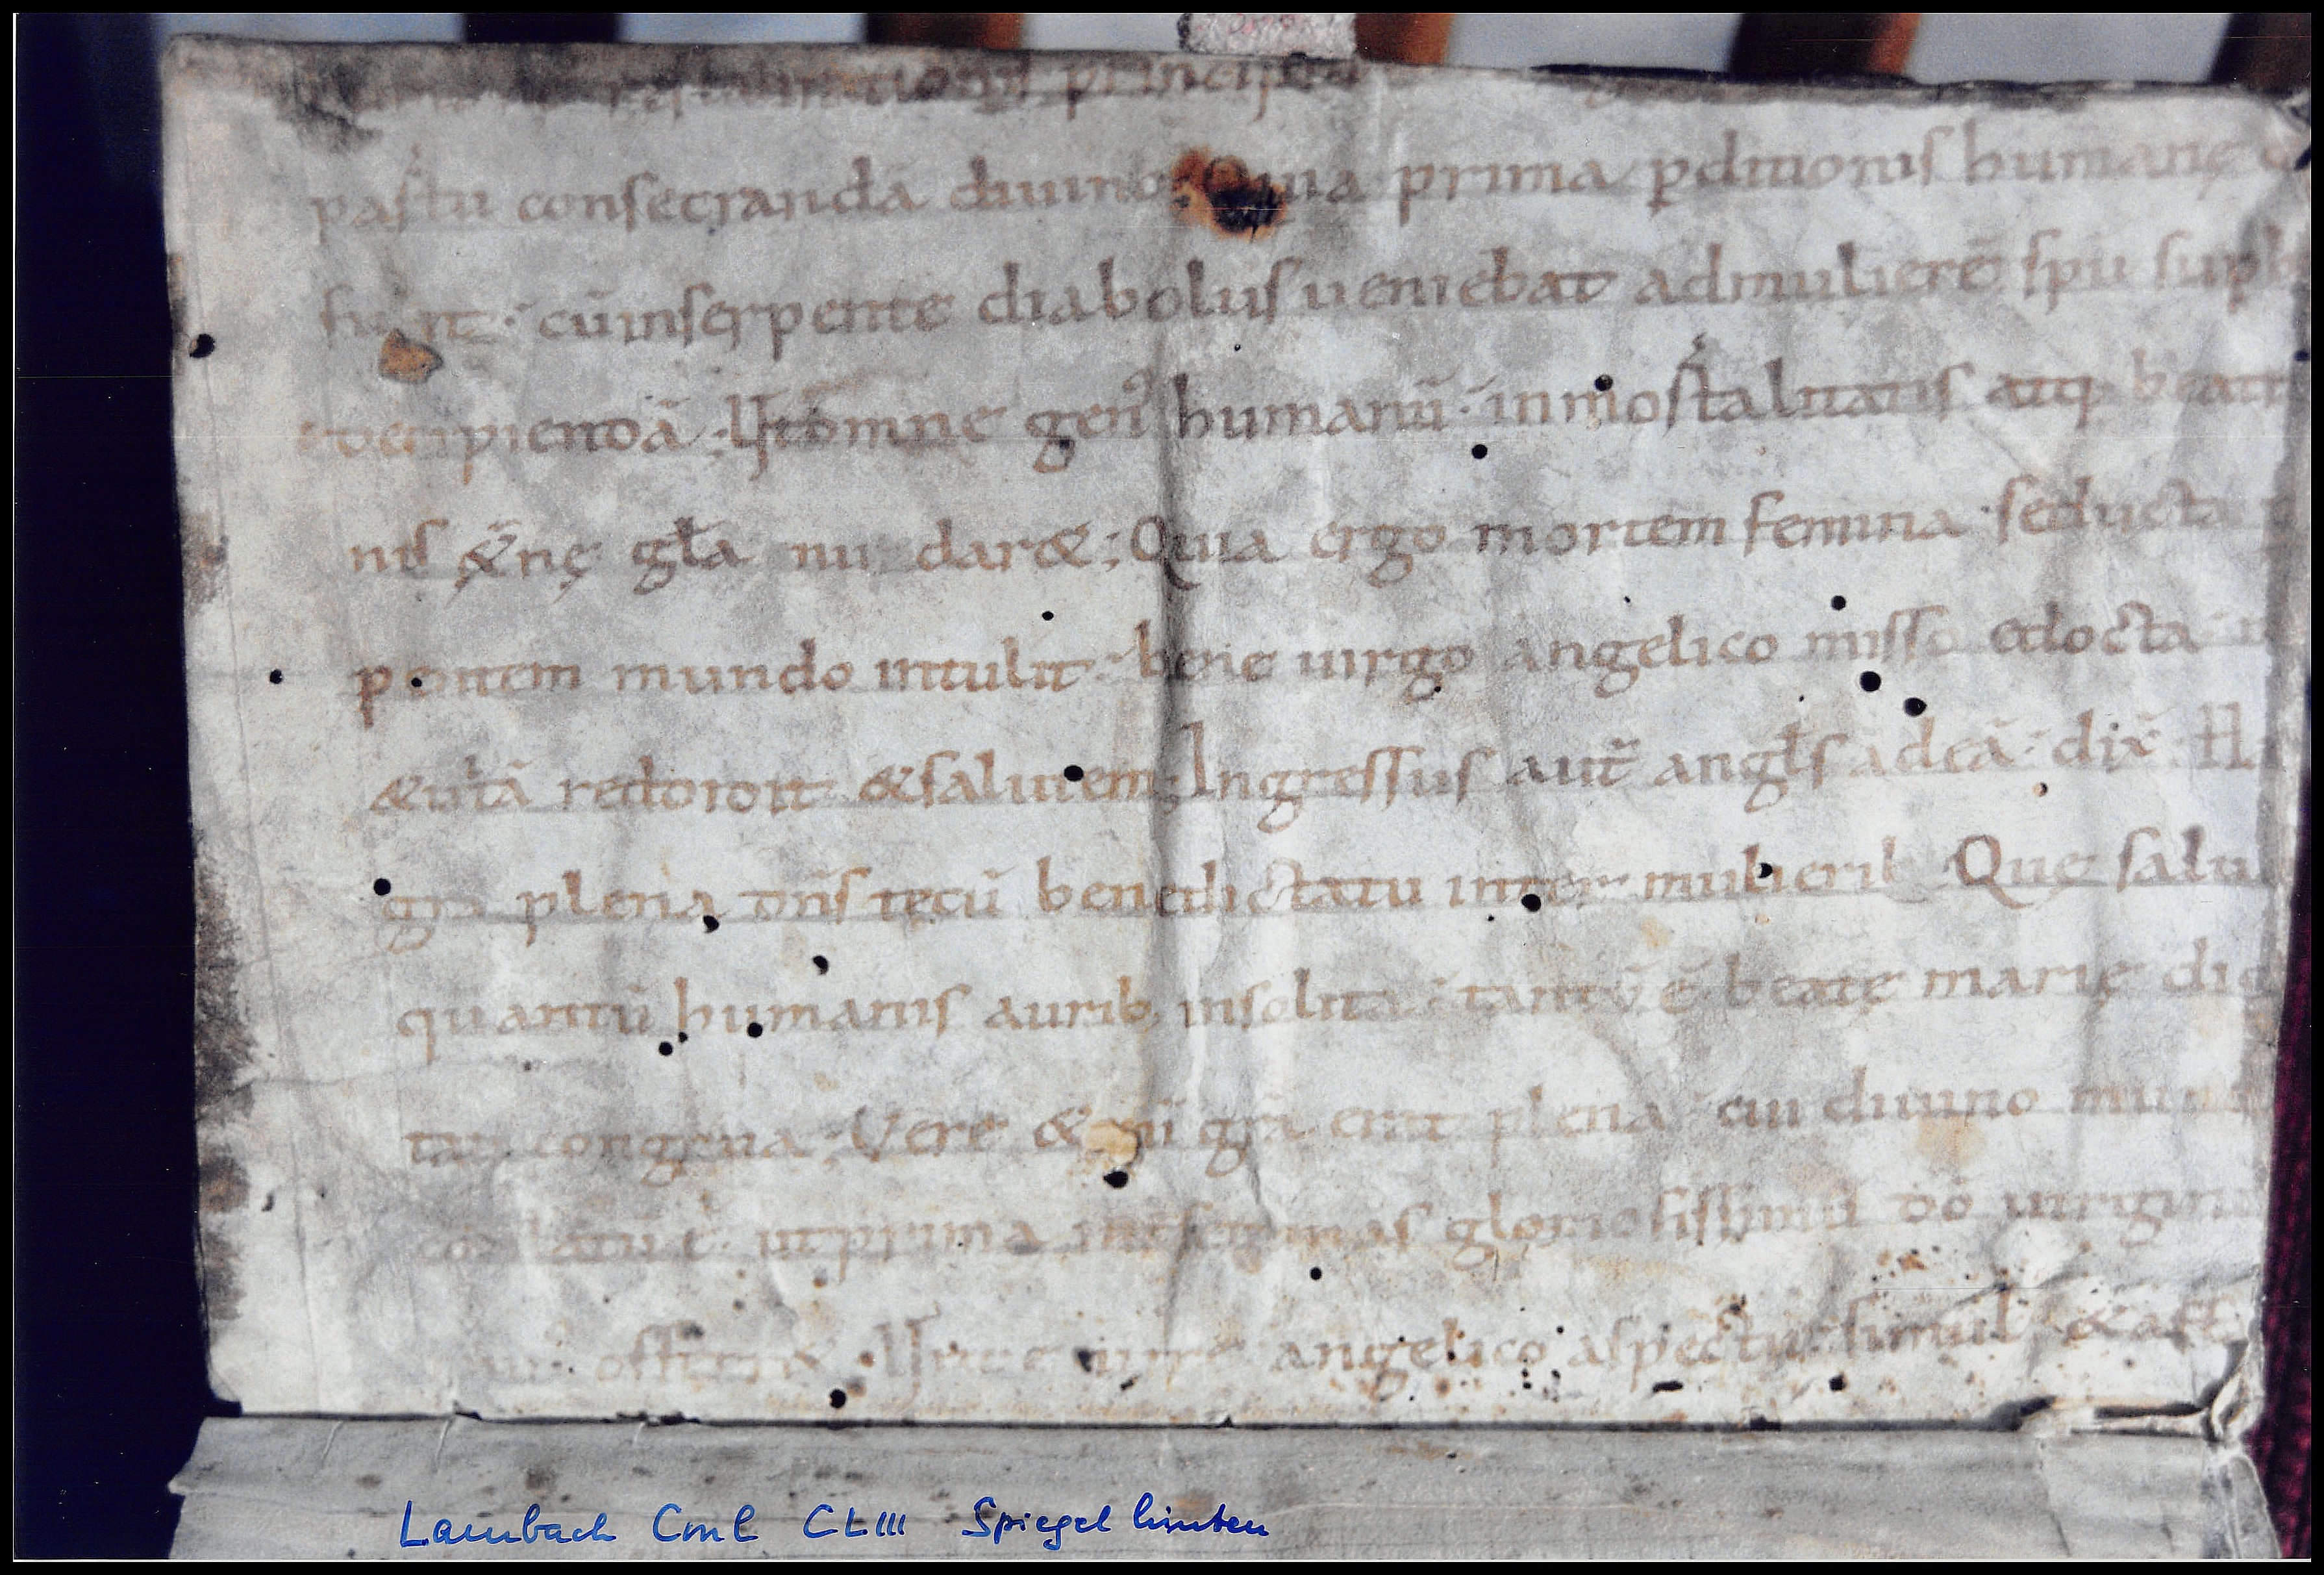 restaurationis principiu
partu consecrandā diuino; Quia prima pditionis humanę
fuit · cū in serpente diabolus ueniebat ad mulierē spu supb
decipiendā · gen⁹ humanū · inmortalitatis atq beati
nis &nę gła nu dar&; Quia ergo mortem femina seducta
pentem mundo intulit · bene uirgo angelico misso edocta
& uitā red &salutem; Ingressus aut angls ad eā · dix
gra plena dns tecū benedicta tu inter mulierib Quę salu
quantū humanis aurib insolita · tantū ē beatę marię dig
tati congrua · Vere & grā erat plena · cui diuino mun
ē · ut prima int feminas gloriosissimū do uirgini
offerr& · iure angelico aspectu simul &aff
Laubach Cml CLIII Spiegel hinten